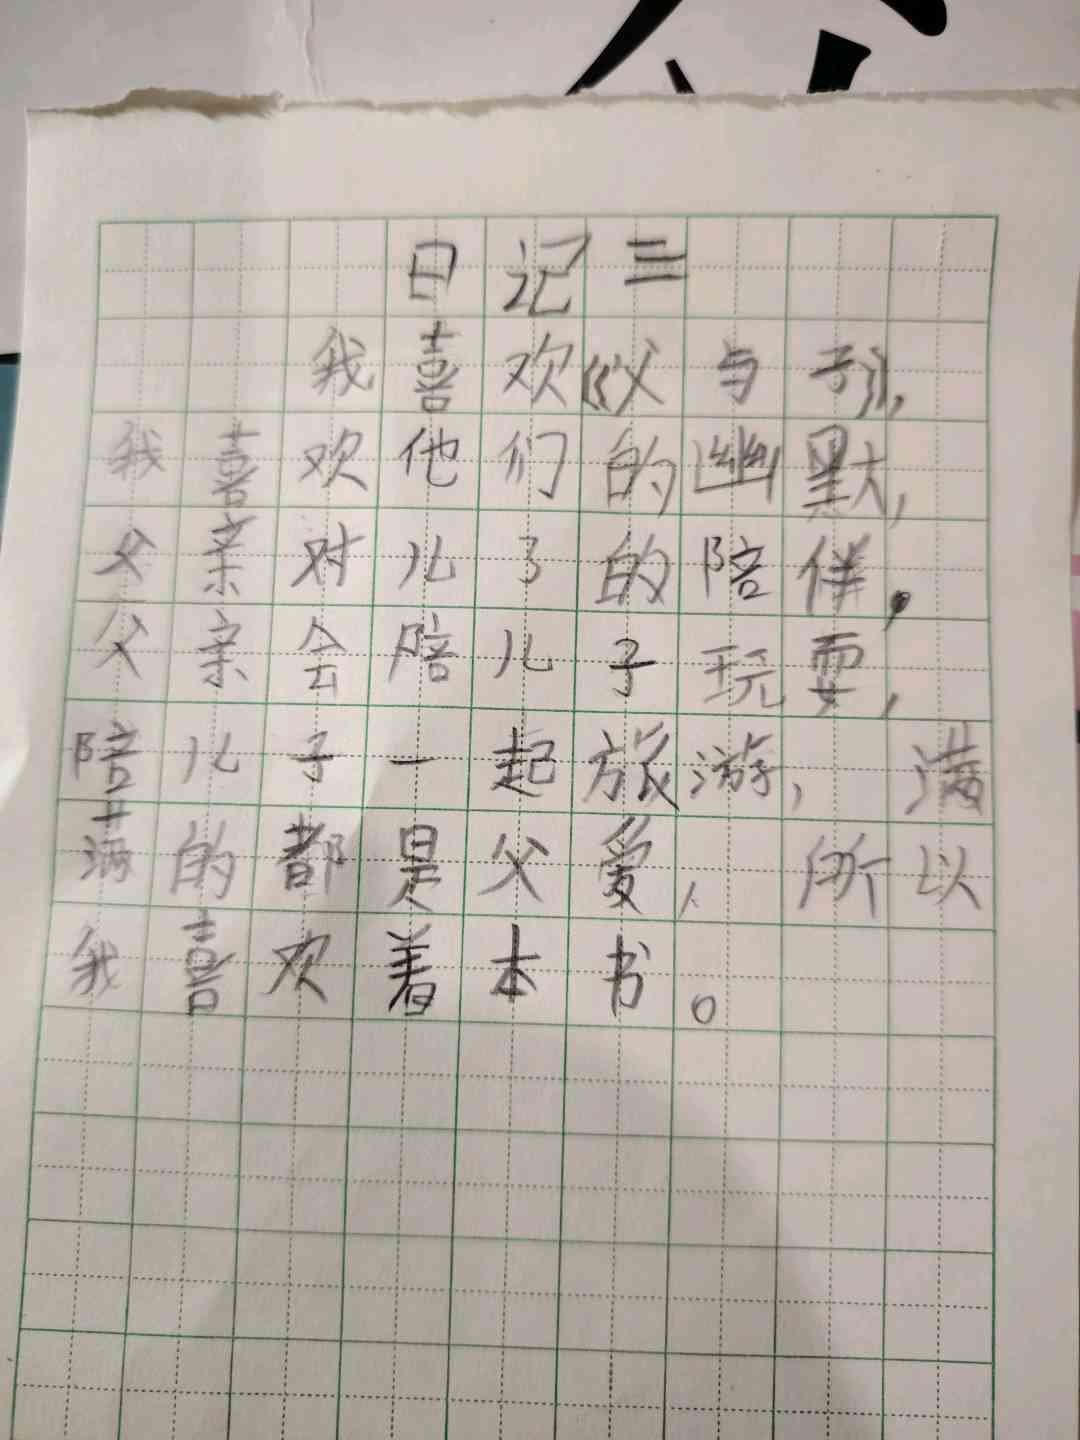 日记三
我喜欢《父与子》,
我喜欢他们的幽默,
父亲对儿子的陪伴,
父亲会陪儿子玩耍,
陪儿子一起旅游, 满
满的都是父爱, 所以
我喜欢着本书。